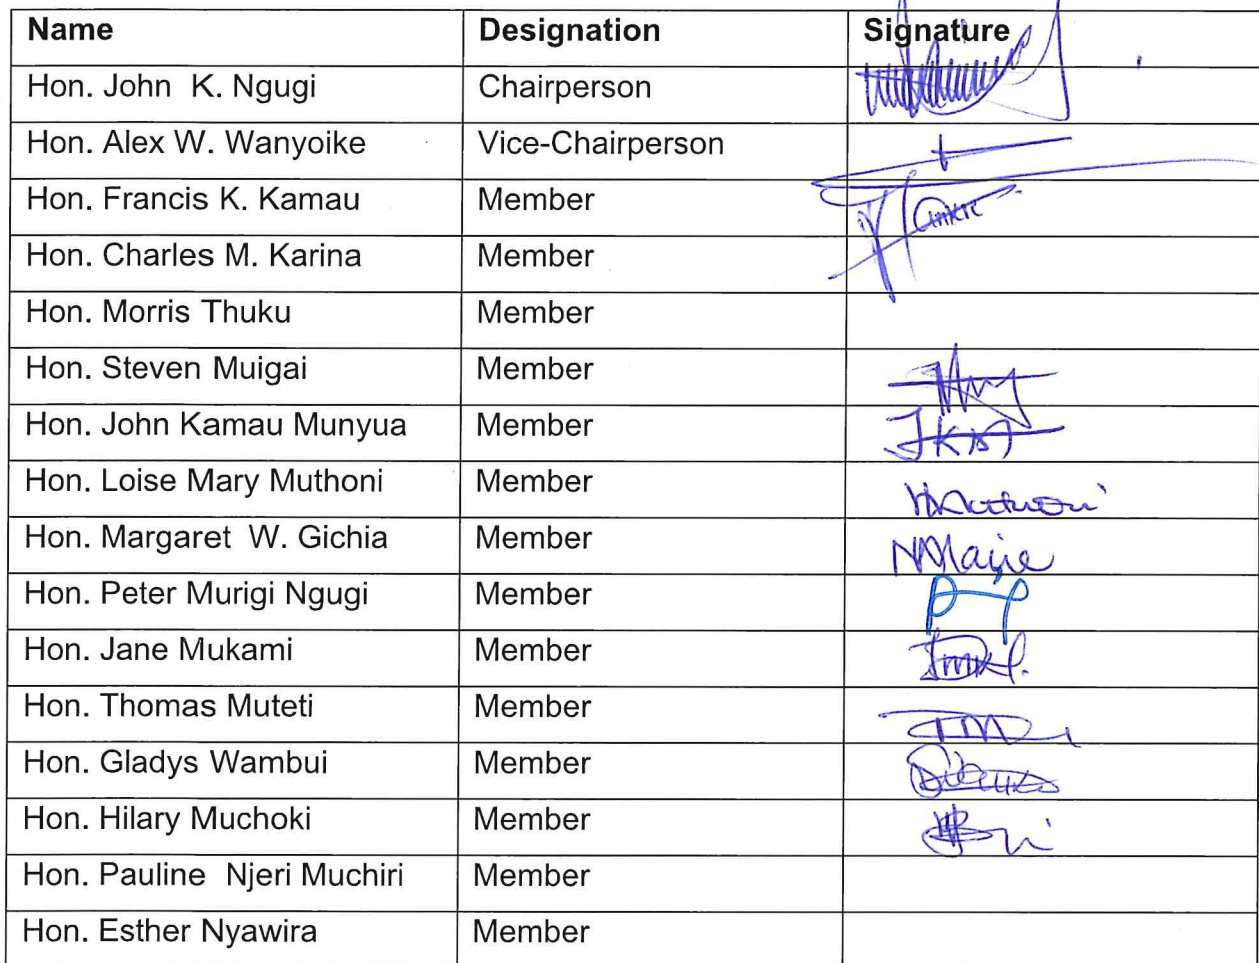 Name Designation Signature
Hon. John K. Ngugi Chairperson
Hon. Alex W. Wanyoike Vice-Chairperson
Hon. Francis K. Kamau Member
Hon. Charles M. Karina Member
Hon. Morris Thuku Member
Hon. Steven Muigai Member
Hon. John Kamau Munyua Member
Hon. Loise Mary Muthoni Member
Hon. Margaret W. Gichia Member
Hon. Peter Murigi Ngugi Member
Hon. Jane Mukami Member
Hon. Thomas Muteti Member
Hon. Gladys Wambui Member
Hon. Hilary Muchoki Member
Hon. Pauline Njeri Muchiri Member
Hon. Esther Nyawira Member